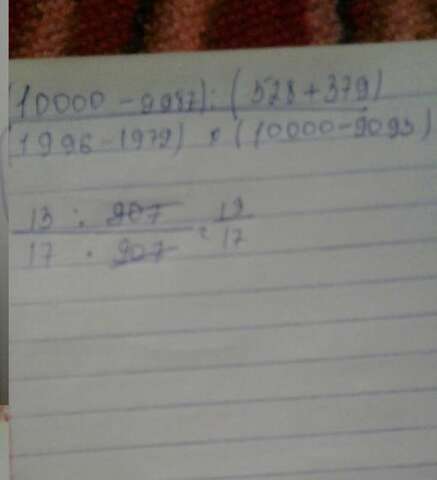 (10000-9987):(528+379)
(1996-1979)•(10000-9093)
13 : 907
17 • 907 = 19/17